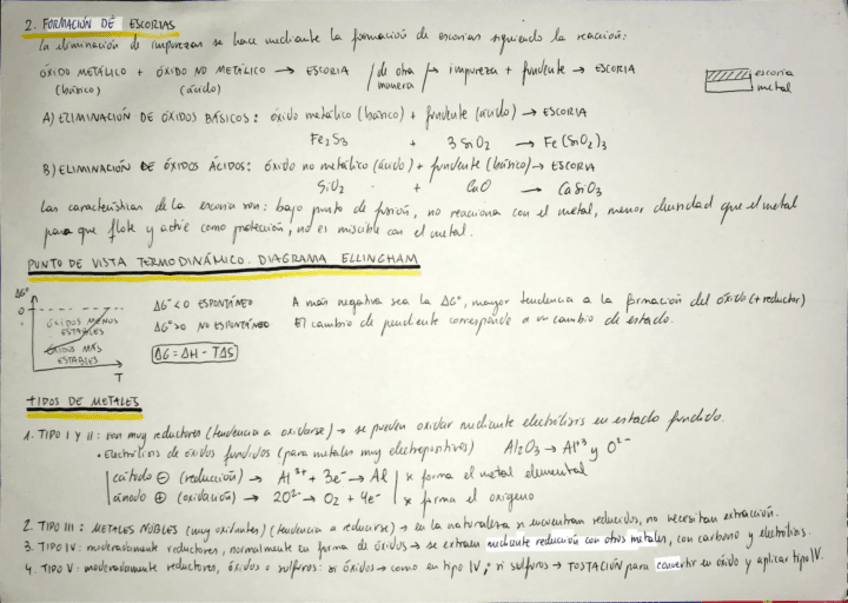 2. FORMACIÓN DE ESCORIAS
La eliminación de impurezas se hace mediante la formación de escorias siguiendo la reacción:
ÓXIDO METÁLICO + ÓXIDO NO METÁLICO → ESCORIA / de otra manera / → impureza + fundente → ESCORIA
(básico) (ácido)
escoria
metal
A) ELIMINACIÓN DE ÓXIDOS BÁSICOS: óxido metálico (básico) + fundente (ácido) → ESCORIA
Fe₂S₃ + 3 SiO₂ → Fe(SiO₂)₃
B) ELIMINACIÓN DE ÓXIDOS ÁCIDOS: óxido no metálico (ácido) + fundente (básico) → ESCORIA
SiO₂ + CaO → CaSiO₃
Las características de la escoria son: bajo punto de fusión, no reacciona con el metal, menor densidad que el metal
para que flote y actúe como protección, no es miscible con el metal.
PUNTO DE VISTA TERMODINÁMICO. DIAGRAMA ELLINGHAM
ΔG°
0
ÓXIDOS MENOS
ESTABLES
ÓXIDOS MÁS
ESTABLES
T
ΔG° < 0 ESPONTÁNEO
ΔG° > 0 NO ESPONTÁNEO
ΔG = ΔH - TΔS
A más negativa sea la ΔG°, mayor tendencia a la formación del óxido (+ reductor)
El cambio de pendiente corresponde a un cambio de estado.
TIPOS DE METALES
1. TIPO I Y II: son muy reductores (tendencia a oxidarse) → se pueden oxidar mediante electrólisis en estado fundido.
• Electrólisis de óxidos fundidos (para metales muy electropositivos) Al₂O₃ → Al⁺³ y O²⁻
cátodo ⊖ (reducción) → Al³⁺ + 3e⁻ → Al | * forma el metal elemental
ánodo ⊕ (oxidación) → 2O²⁻ → O₂ + 4e⁻ | * forma el oxígeno
2. TIPO III: METALES NOBLES (muy oxidantes) (tendencia a reducirse) → en la naturaleza se encuentran reducidos, no necesitan extracción.
3. TIPO IV: moderadamente reductores, normalmente en forma de óxidos → se extraen mediante reducción con otros metales, con carbono y electrólisis.
4. TIPO V: moderadamente reductores, óxidos o sulfuros: si óxidos → como en tipo IV, si sulfuros → TOSTACIÓN para convertir en óxido y aplicar tipo IV.